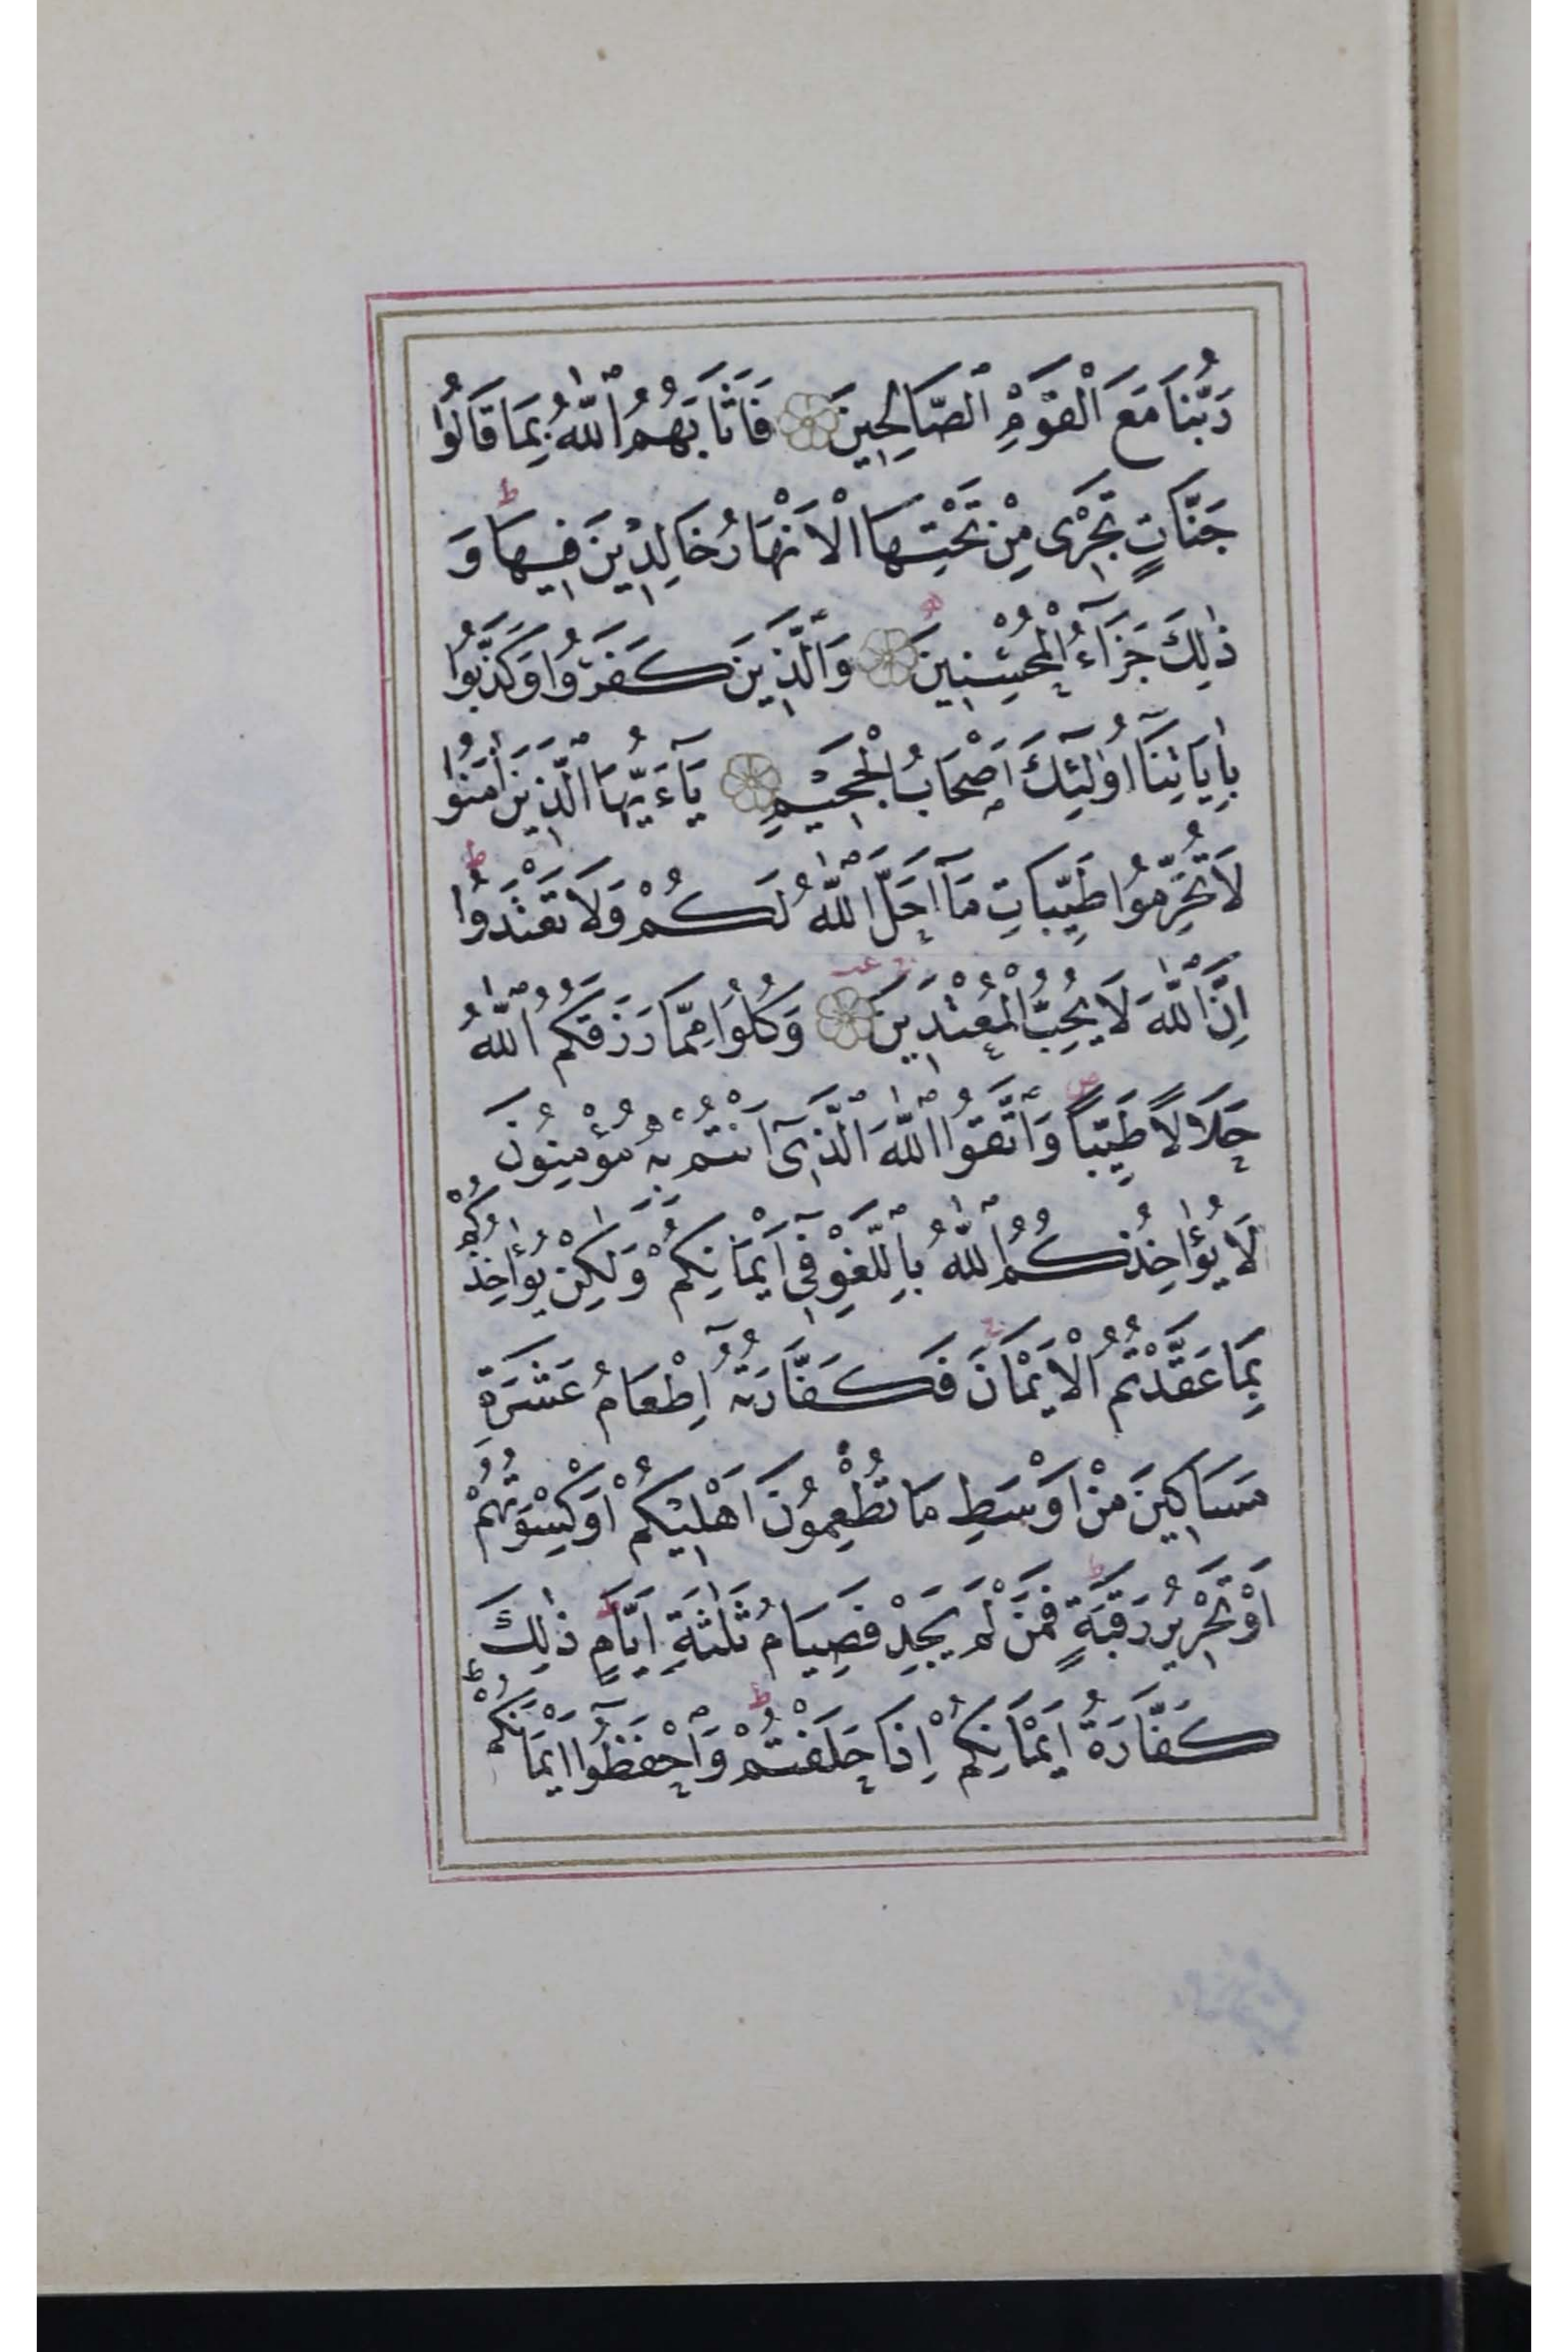 رَبُّنَا مَعَ ٱلْقَوْمِ ٱلصَّالِحِينَ فَاَثَابَهُمُ ٱللّٰهُ بِمَا قَالُوا
جَنَّاتٍ تَجْرِى مِنْ تَحْتِهَا الْاَنْهَارُ خَالِدِيْنَ فِيهَا ط وَ
ذٰلِكَ جَزَآءُ الْمُحْسِنِينَ وَٱلَّذِينَ كَفَرُوا وَكَذَّبُوا
بِاٰيَاتِنَآ اُولٰٓئِكَ اَصْحَابُ الْجَحِيْمِ يَآءَيُّهَا ٱلَّذِينَ اٰمَنُوا
لَا تُحَرِّمُوا طَيِّبَاتِ مَآ اَحَلَّ ٱللّٰهُ لَكُمْ وَلَا تَعْتَدُوا ط
اِنَّ ٱللّٰهَ لَا يُحِبُّ الْمُعْتَدِينَ وَكُلُوا مِمَّا رَزَقَكُمُ ٱللّٰهُ
حَلَالًا طَيِّبًا ص وَٱتَّقُوا ٱللّٰهَ ٱلَّذِىٓ اَنْتُمْ بِهٖ مُؤْمِنُونَ
لَا يُؤٰاخِذُكُمُ ٱللّٰهُ بِٱللَّغْوِ فِىٓ اَيْمَانِكُمْ وَلٰكِنْ يُؤٰاخِذُكُمْ
بِمَا عَقَّدْتُمُ الْاَيْمَانَ ج فَكَفَّارَتُهُٓ اِطْعَامُ عَشَرَةِ
مَسَاكِينَ مِنْ اَوْسَطِ مَا تُطْعِمُونَ اَهْلِيْكُمْ اَوْ كِسْوَتُهُمْ
اَوْ تَحْرِيرُ رَقَبَةٍ ط فَمَنْ لَمْ يَجِدْ فَصِيَامُ ثَلٰثَةِ اَيَّامٍ ط ذٰلِكَ
كَفَّارَةُ اَيْمَانِكُمْ اِذَا حَلَفْتُمْ ط وَٱحْفَظُوٓا اَيْمَانَكُمْ ط